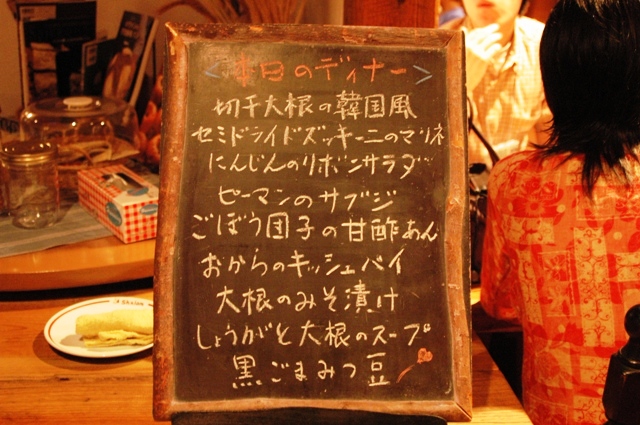 <本日のディナー>
切干大根の韓国風
セミドライドズッキーニのマリネ
にんじんのリボンサラダ
ピーマンのサブジ
ごぼう団子の甘酢あん
おからのキッシュパイ
大根のみそ漬け
しょうがと大根のスープ
黒ごまみつ豆